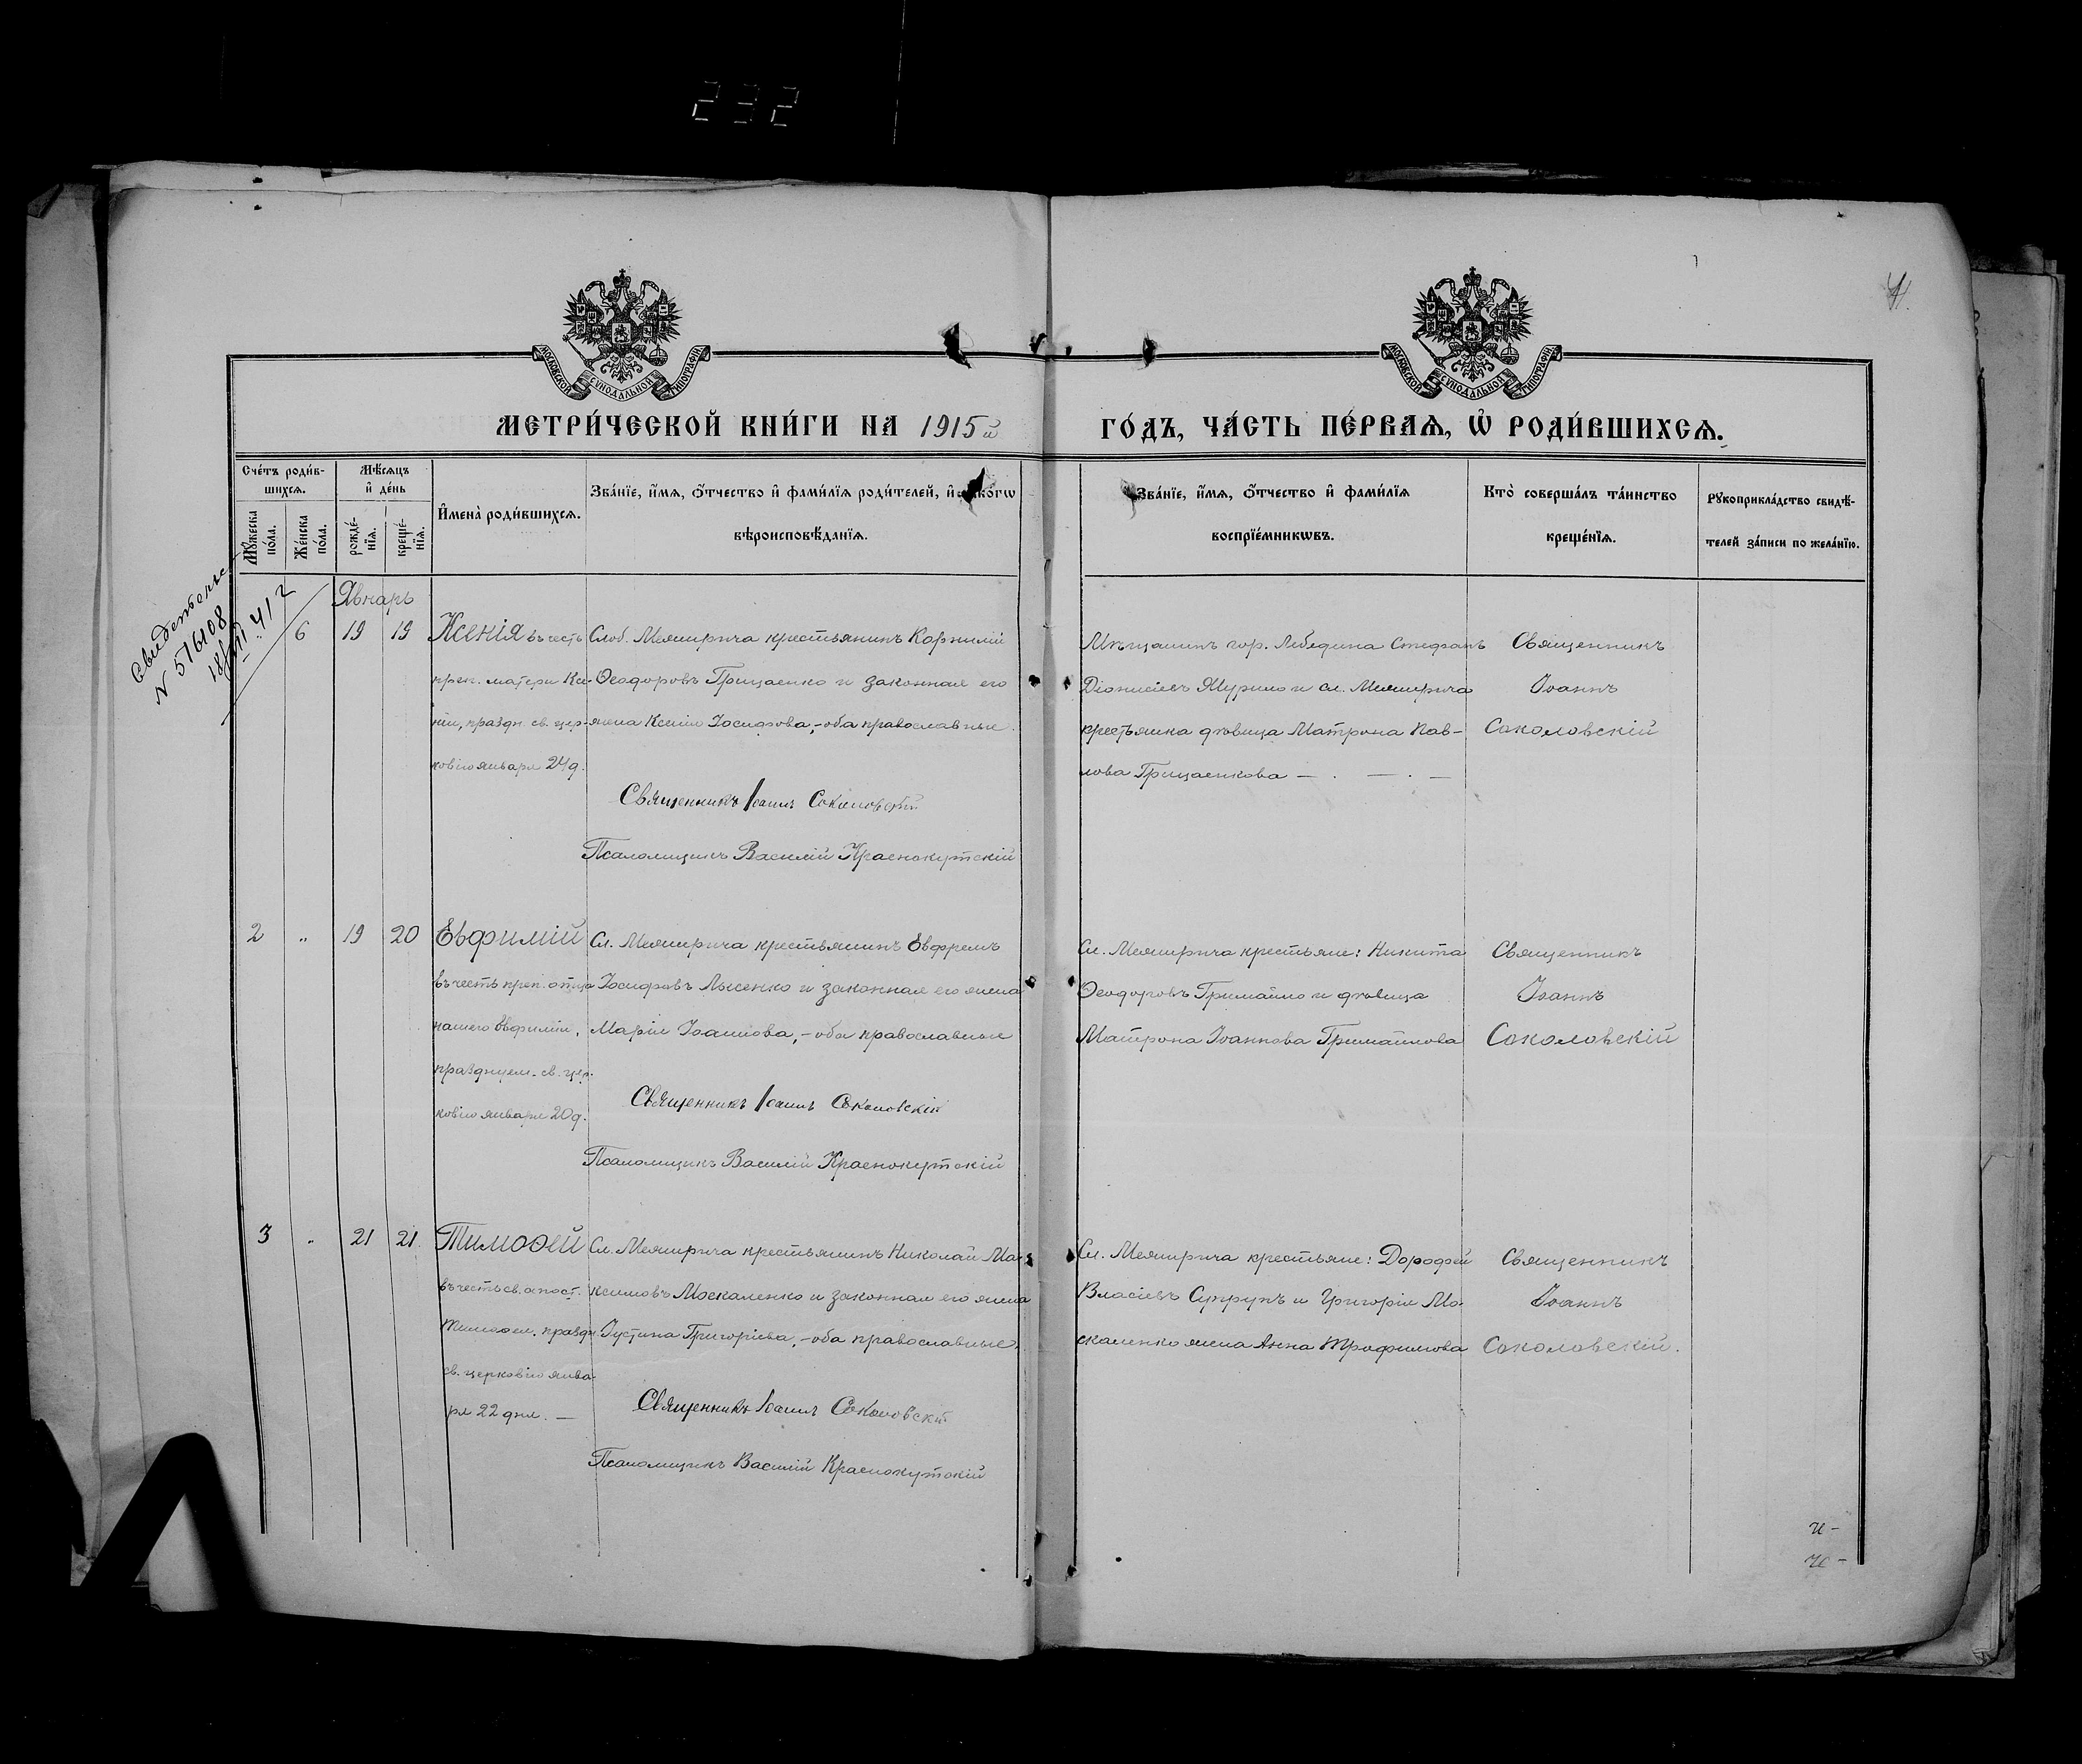 232
4.
МОСКОВСКОЙ СѴНОДАЛЬНОЙ ТИПОГРАФІИ
МОСКОВСКОЙ СѴНОДАЛЬНОЙ ТИПОГРАФІИ
МЕТРИ́ЧЕСКОЙ КНИ́ГИ НА 1915й
ГО́ДЪ, ЧА́СТЬ ПЕ́РВАѦ, Ѿ РОДИ́ВШИХСѦ.
Сче́тъ роди́в-
шихсѧ.
Мꙋ́жеска по́ла.
Же́нска по́ла.
Мѣ́сѧцъ
и҆ де́нь
рожде́-
нїѧ.
креще́-
нїѧ.
И҆мена̀ роди́вшихсѧ.
Зва́нїе, и҆́мѧ, ѻ҆́тчество и҆ фами́лїѧ роди́телей, и҆ како́гѡ
вѣроисповѣ́данїѧ.
Зва́нїе, и҆́мѧ, ѻ҆́тчество и҆ фами́лїѧ
воспрїе́мникѡвъ.
Кто̀ соверша́лъ та́инство
креще́нїѧ.
Рꙋкоприкла́дство свидѣ́-
телей за́писи по жела́нїю.
Свидетельс
N 516108
18/VII 41 г
Январь
6 19 19
Ксенія въ честь
преп. матери Ксе-
ніи, праздн. св. цер-
ковію января 24 д.
Слоб. Межирича крестьянинъ Корнилій
Ѳеодоровъ Грицаенко и законная его
жена Ксенія Іосифова,-оба православные.
Священникъ Іоаннъ Соколовскій
Псаломщикъ Василій Краснокутскій
Мѣщанинъ гор. Лебедина Стефанъ
Діонисіевъ Журило и сл. Межирича
крестьянка дѣвица Матрона Пав-
лова Грицаенкова — . — . —
Священникъ
Іоаннъ
Соколовскій
2 „ 19 20
Евфимій
въ честь преп. отца
нашего Евфимія,
празднуем. св. цер-
ковію января 20 д.
Сл. Межирича крестьянинъ Евфремъ
Іосифовъ Лысенко и законная его жена
Марія Іоаннова,-оба православные
Священникъ Іоаннъ Соколовскій
Псаломщикъ Василій Краснокутскій
Сл. Межирича крестьяне: Никита
Ѳеодоровъ Гримайло и дѣвица
Матрона Іоаннова Гримайлова
Священникъ
Іоаннъ
Соколовскій
3 „ 21 21
Тимоѳей
въ честь св. апост.
Тимоѳея, праздн.
св. церковію янва-
ря 22 дня. —
Сл. Межирича крестьянинъ Николай Ма-
ксимовъ Москаленко и законная его жена
Іустина Григоріева,-оба православные.
Священникъ Іоаннъ Соколовскій
Псаломщикъ Василій Краснокутскій
Сл. Межирича крестьяне: Дорофей
Власіевъ Супрунъ и Григорія Мо-
скаленко жена Анна Трофимова
Священникъ
Іоаннъ
Соколовскій.